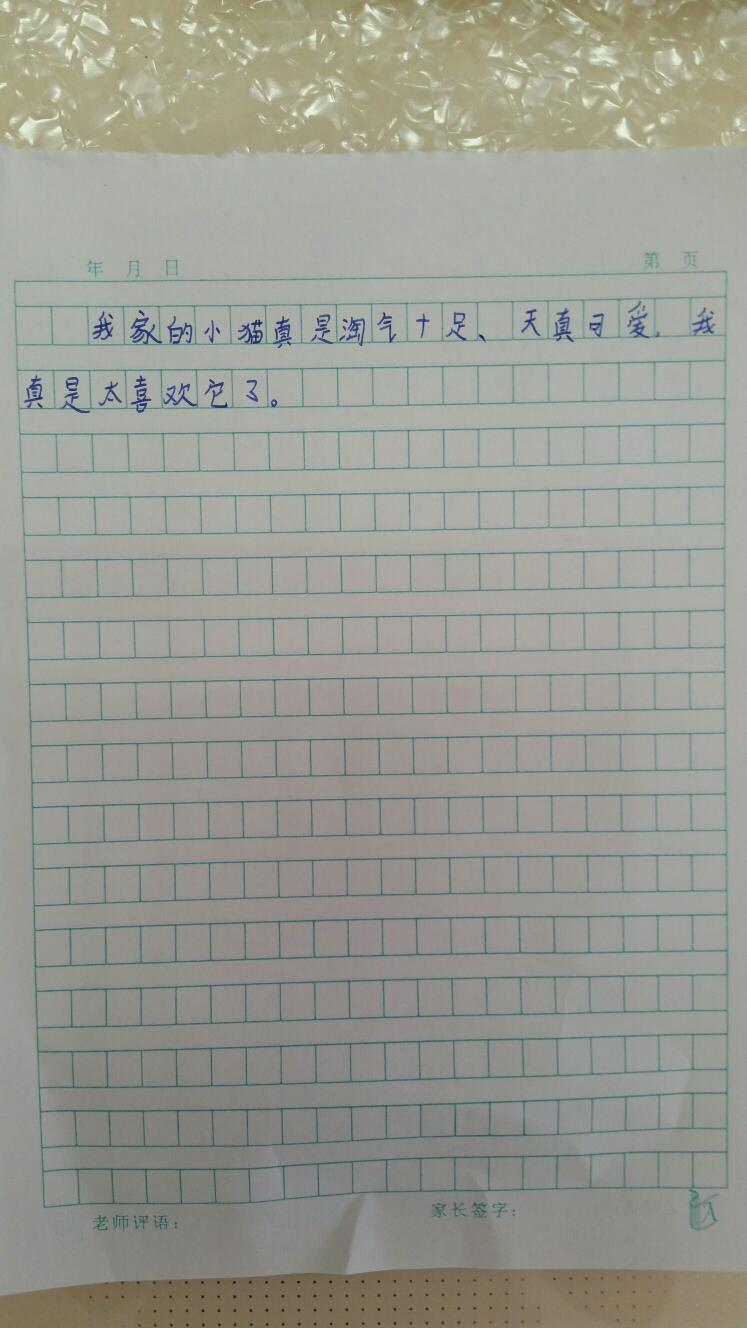 年 月 日 第 页
我家的小猫真是淘气十足、天真可爱,我
真是太喜欢它了。
老师评语: 家长签字: